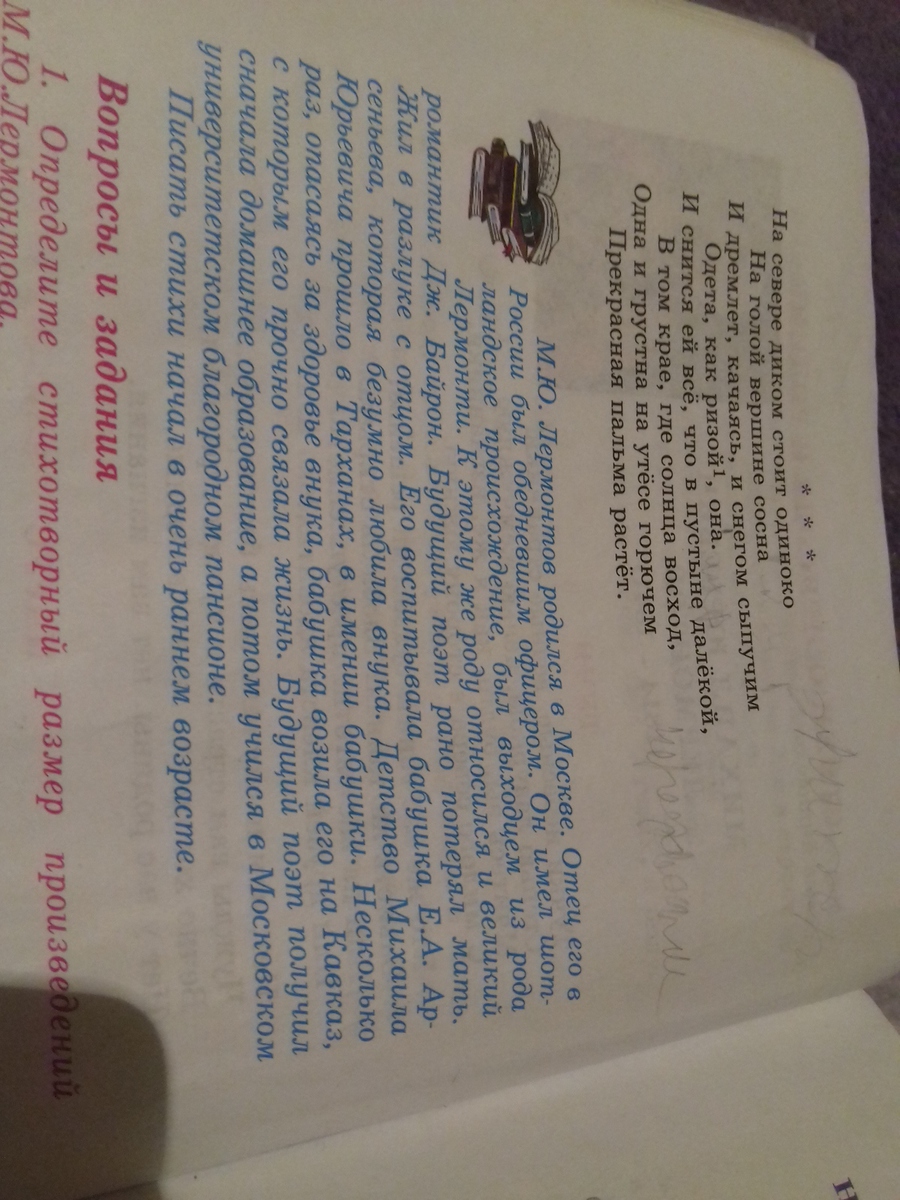 * * *
На севере диком стоит одиноко
На голой вершине сосна
И дремлет, качаясь, и снегом сыпучим
Одета, как ризой¹, она.
И снится ей всё, что в пустыне далёкой,
В том крае, где солнца восход,
Одна и грустна на утёсе горючем
Прекрасная пальма растёт.
М.Ю. Лермонтов родился в Москве. Отец его в
России был обедневшим офицером. Он имел шот-
ландское происхождение, был выходцем из рода
Лермонти. К этому же роду относился и великий
романтик Дж. Байрон. Будущий поэт рано потерял мать.
Жил в разлуке с отцом. Его воспитывала бабушка Е.А. Ар-
сеньева, которая безумно любила внука. Детство Михаила
Юрьевича прошло в Тарханах, в имении бабушки. Несколько
раз, опасаясь за здоровье внука, бабушка возила его на Кавказ,
с которым его прочно связала жизнь. Будущий поэт получил
сначала домашнее образование, а потом учился в Московском
университетском благородном пансионе.
Писать стихи начал в очень раннем возрасте.
Вопросы и задания
1. Определите стихотворный размер произведений
М.Ю.Лермонтова.